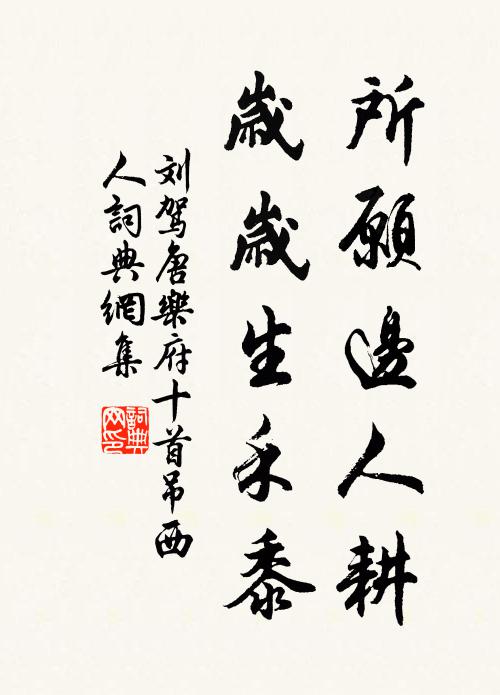 所願邊人耕
歲歲生禾黍
刘驾唐樂府十首吊西
人詞典網集
詞典
网印